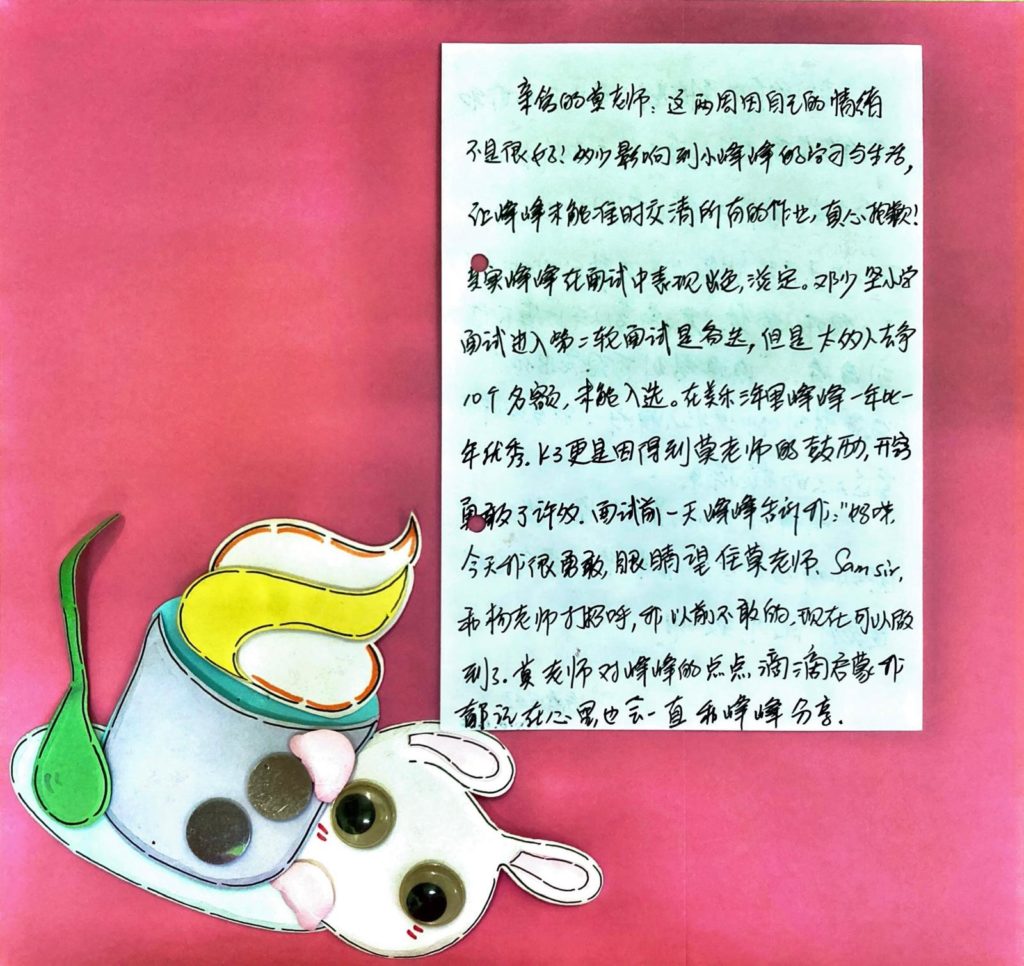 亲爱的莫老师：这两周因自己的情绪
不是很好！多少影响到小峰峰的学习与生活，
让峰峰未能准时交清所有的作业，真心抱歉！
其实峰峰在面试中表现出色，淡定。邓少坚小学
面试进入第二轮面试是备选，但是太多人去争
10个名额，未能入选。在美乐三年里峰峰一年比一
年优秀。K3更是因得到莫老师的鼓励，开窍
勇敢了许多。面试前一天峰峰告诉我："妈咪，
今天我很勇敢，眼睛望住莫老师、Sam sir，
和杨老师打招呼，我以前不敢的，现在可以做
到了。莫老师对峰峰的点点滴滴启蒙我
都记在心里也会一直和峰峰分享.